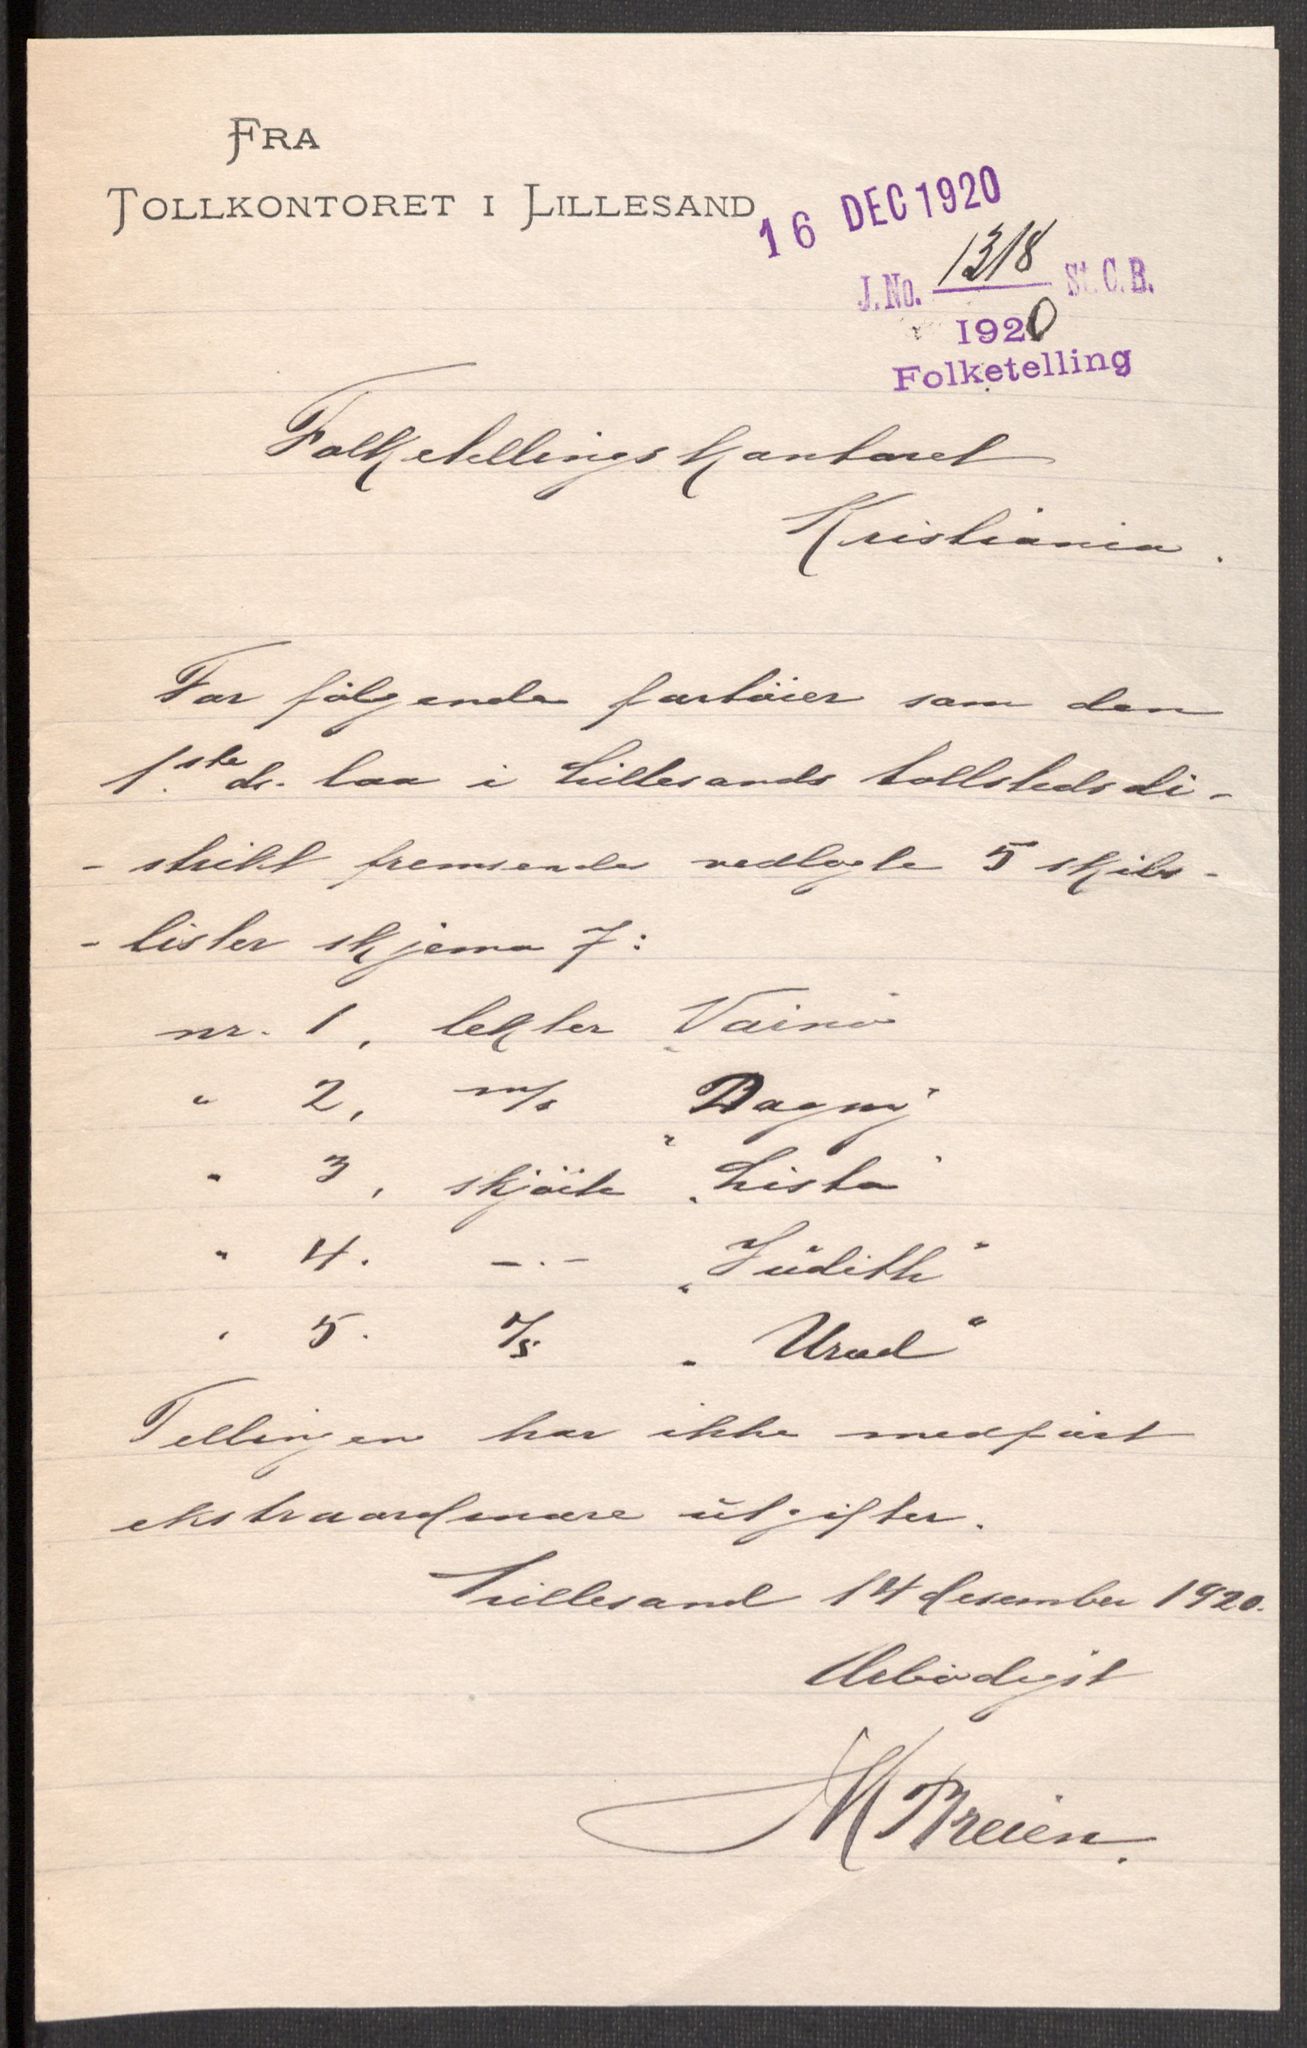 FRA
TOLLKONTORET I LILLESAND
16 DEC 1920
J.No. 1318 St. C. B.
1920
Folketelling
Folketellingskontoret
Kristiania.
For følgende fartøier som den
1.ste ds. laa i Lillesands tollstedsdi-
-strikt fremsendes vedlagte 5 skibs-
-lister skjema 7:
nr. 1, lekter „Vainö
" 2, m/s „Dagny"
" 3, skjöite „Lista"
" 4. -.- „Judith"
" 5. „Urad"
Tellingen har ikke medført
ekstraordinære utgifter.
Lillesand 14 desember 1920.
Ærbødigst
Breien.